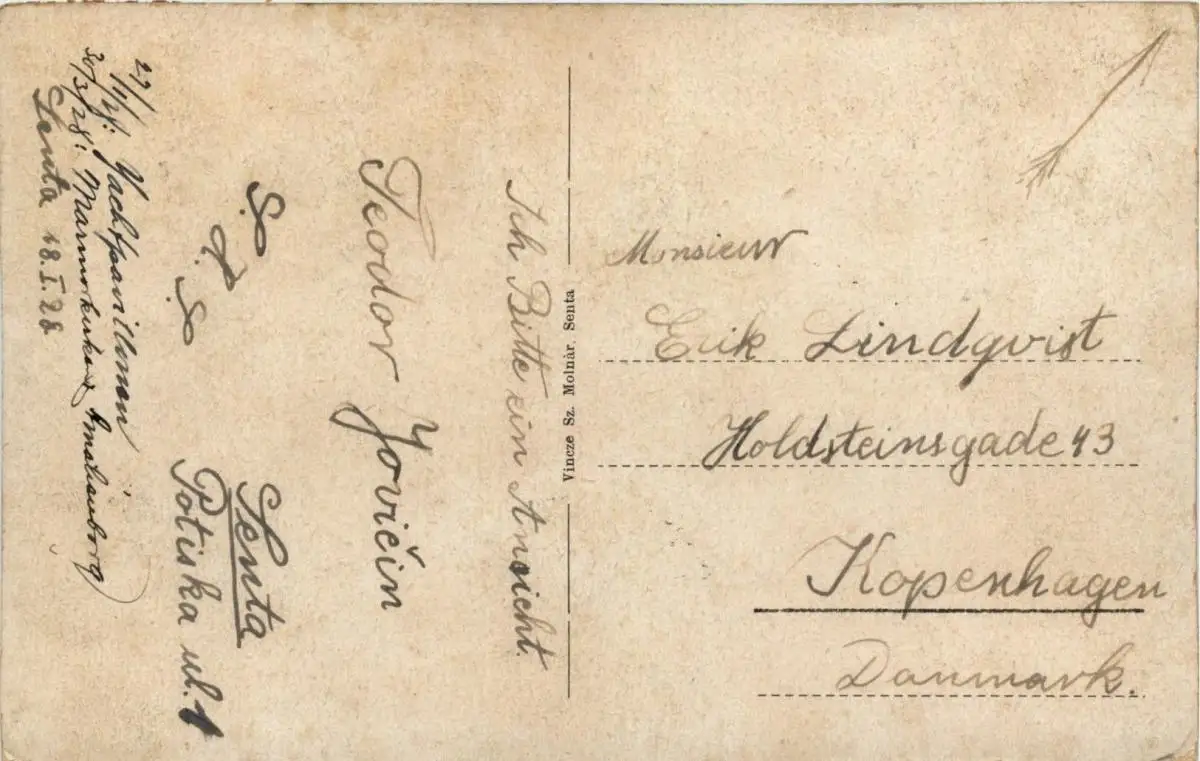 Ich Bitte ein Ansicht.
Teodor Jovičin
S. H. S.
Senta
Potiska ul. 1
27/1/28: Yachtpavillonen,
30/3/28: Marmorkirken, Amalienborg
Senta 18.I.28
Vincze Sz. Molnár, Senta
Monsieur
Erik Lindqvist
Holdsteinsgade 43
Kopenhagen
Danmark.